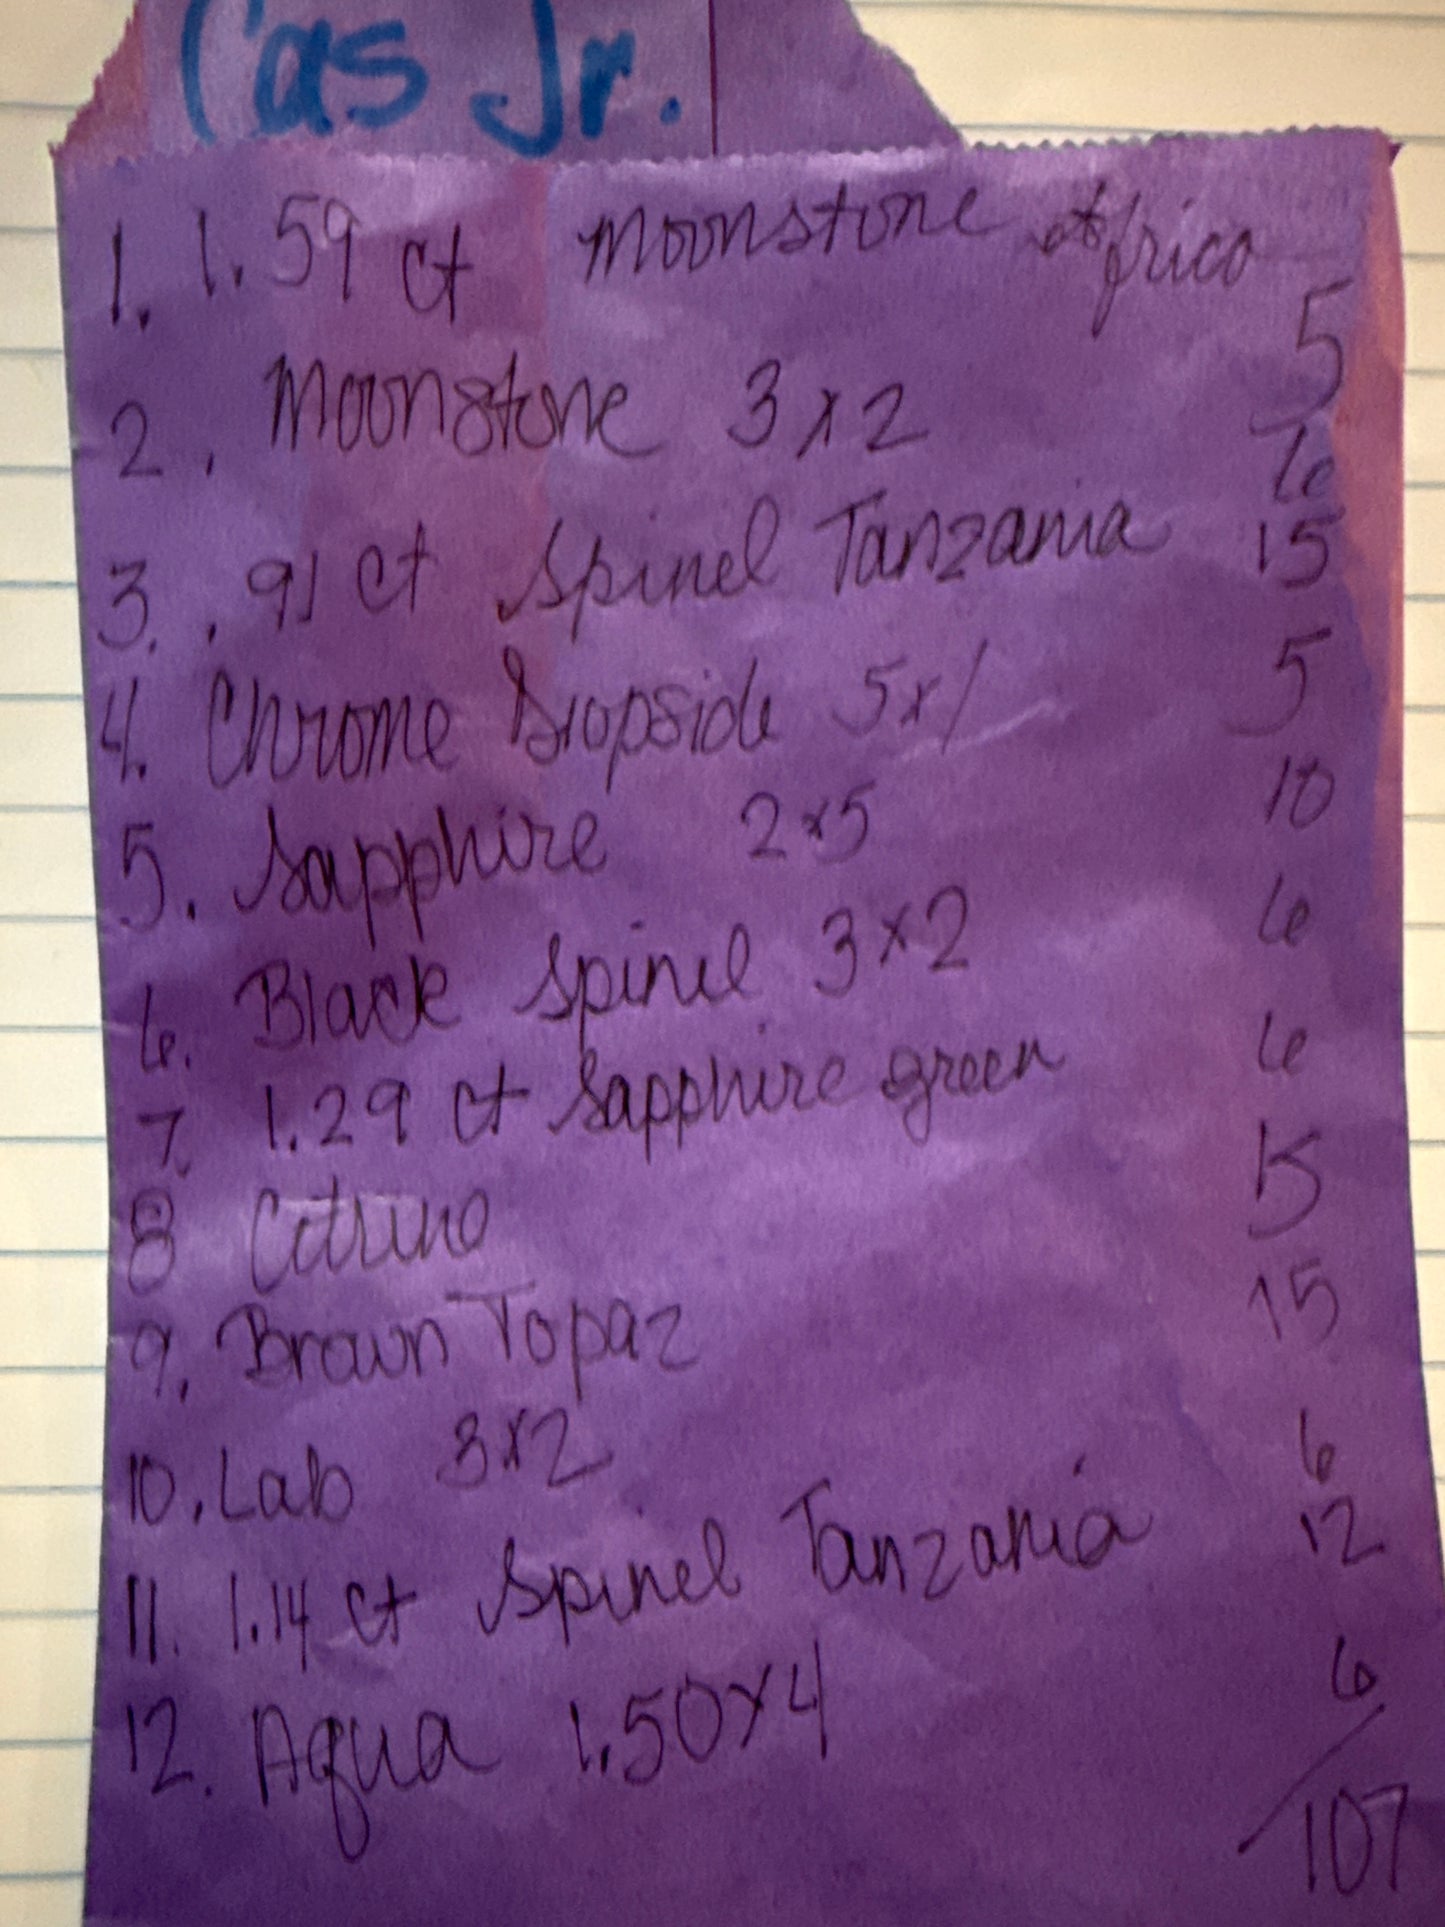 Cas Jr.
1. 1.59 ct Moonstone Africa 5
2. Moonstone 3x2 6
3. .91 ct Spinel Tanzania 15
4. Chrome Diopside 5x1 5
5. Sapphire 2x5 10
6. Black Spinel 3x2 6
7. 1.29 ct Sapphire green 6
8 Citrine 15
9. Brown Topaz 15
10. Lab 3x2 6
11. 1.14 ct Spinel Tanzania 12
12. Aqua 1.50x4 6
107